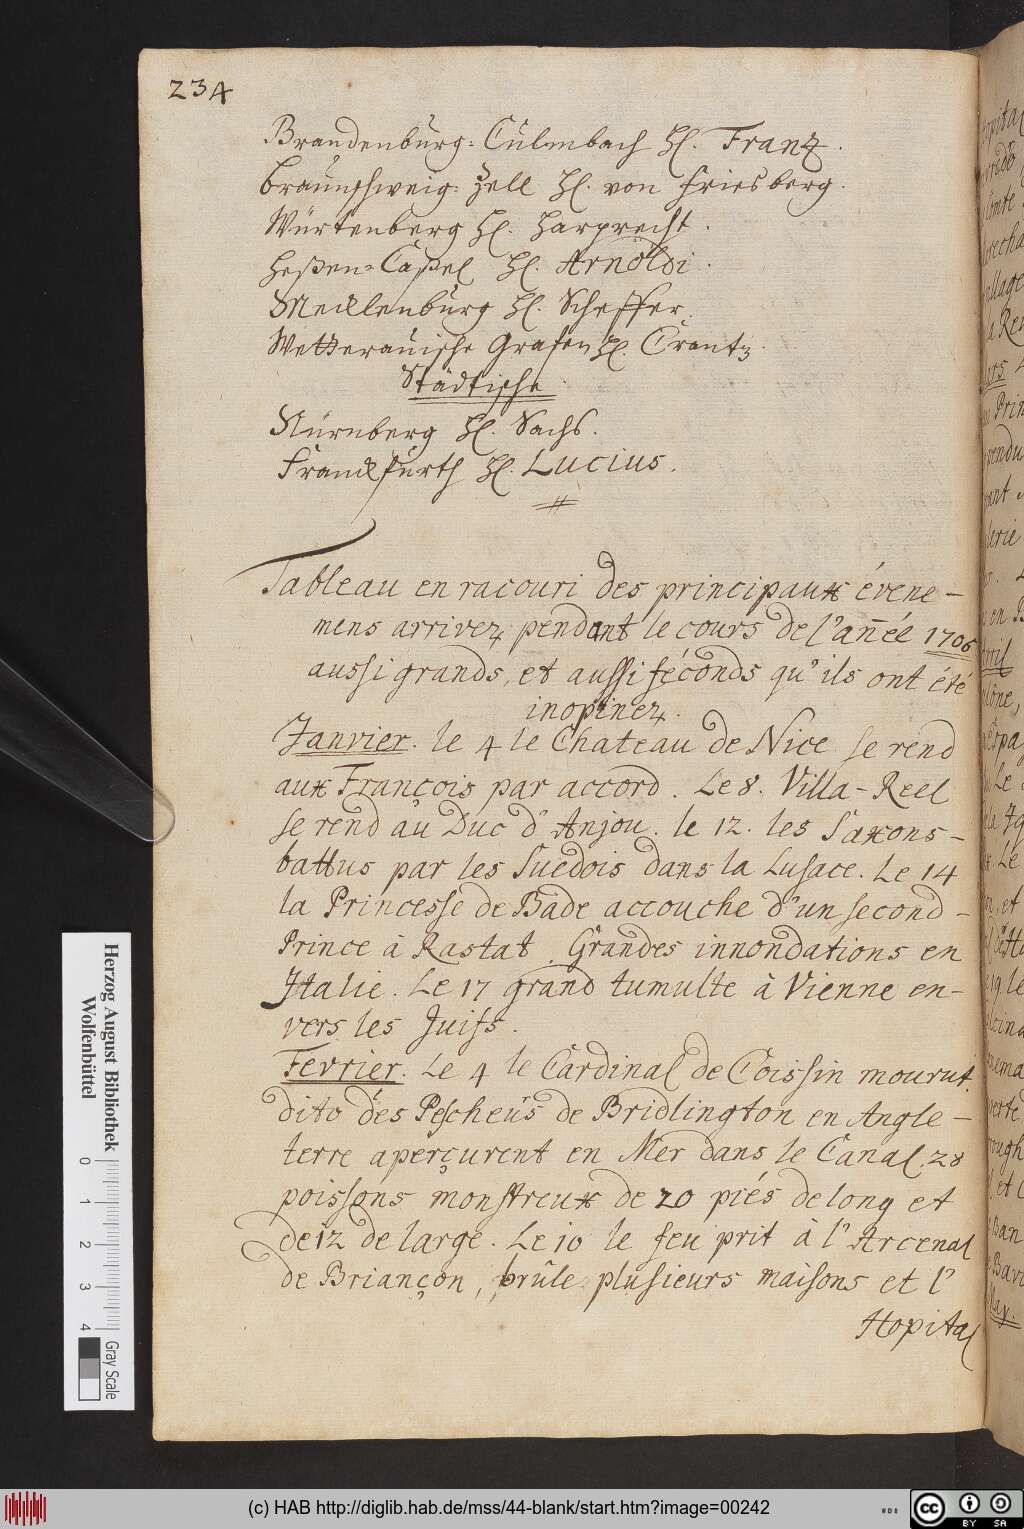 234
Brandenburg-Culmbach H. Frantz.
Braunschweig-Zell H. von Friesberg.
Würtenberg H. Harprecht.
Heßen-Caßel H. Arnoldi.
Mecklenburg H. Scheffer.
Wetterauische Grafen H. Crantz.
Städtische.
Nürnberg H. Sachs.
Franckfurth H. Lucius.
Tableau en racouri des principaux évene-
mens arrivez pendant le cours de l'añéé 1706
aussi grands, et aussi féconds qu'ils ont été
inopinez.
Janvier. le 4 le Chateau de Nice se rend
aux François par accord. Le 8. Villa-Reel
se rend au Duc d'Anjou. le 12. les Saxons-
battus par les Suedois dans la Lusace. Le 14
la Princesse de Bade accouche d'un second-
Prince à Rastat. Grandes innondations en
Italie. Le 17 grand tumulte à Vienne en-
vers les Juifs.
Fevrier. Le 4 le Cardinal de Coissin mourut.
dito des Pescheus de Bridlington en Angle-
terre aperçurent en Mer dans le Canal 28
poissons monstreux de 20 piés de long et
de 12 de large. Le 10 le feu prit à l'Arcenal
de Briançon, brûle plusieurs maisons et l'
Hopital
Herzog August Bibliothek
Wolfenbüttel
0 1 2 3 4
Gray Scale
(c) HAB http://diglib.hab.de/mss/44-blank/start.htm?image=00242
WDB
CC BY SA